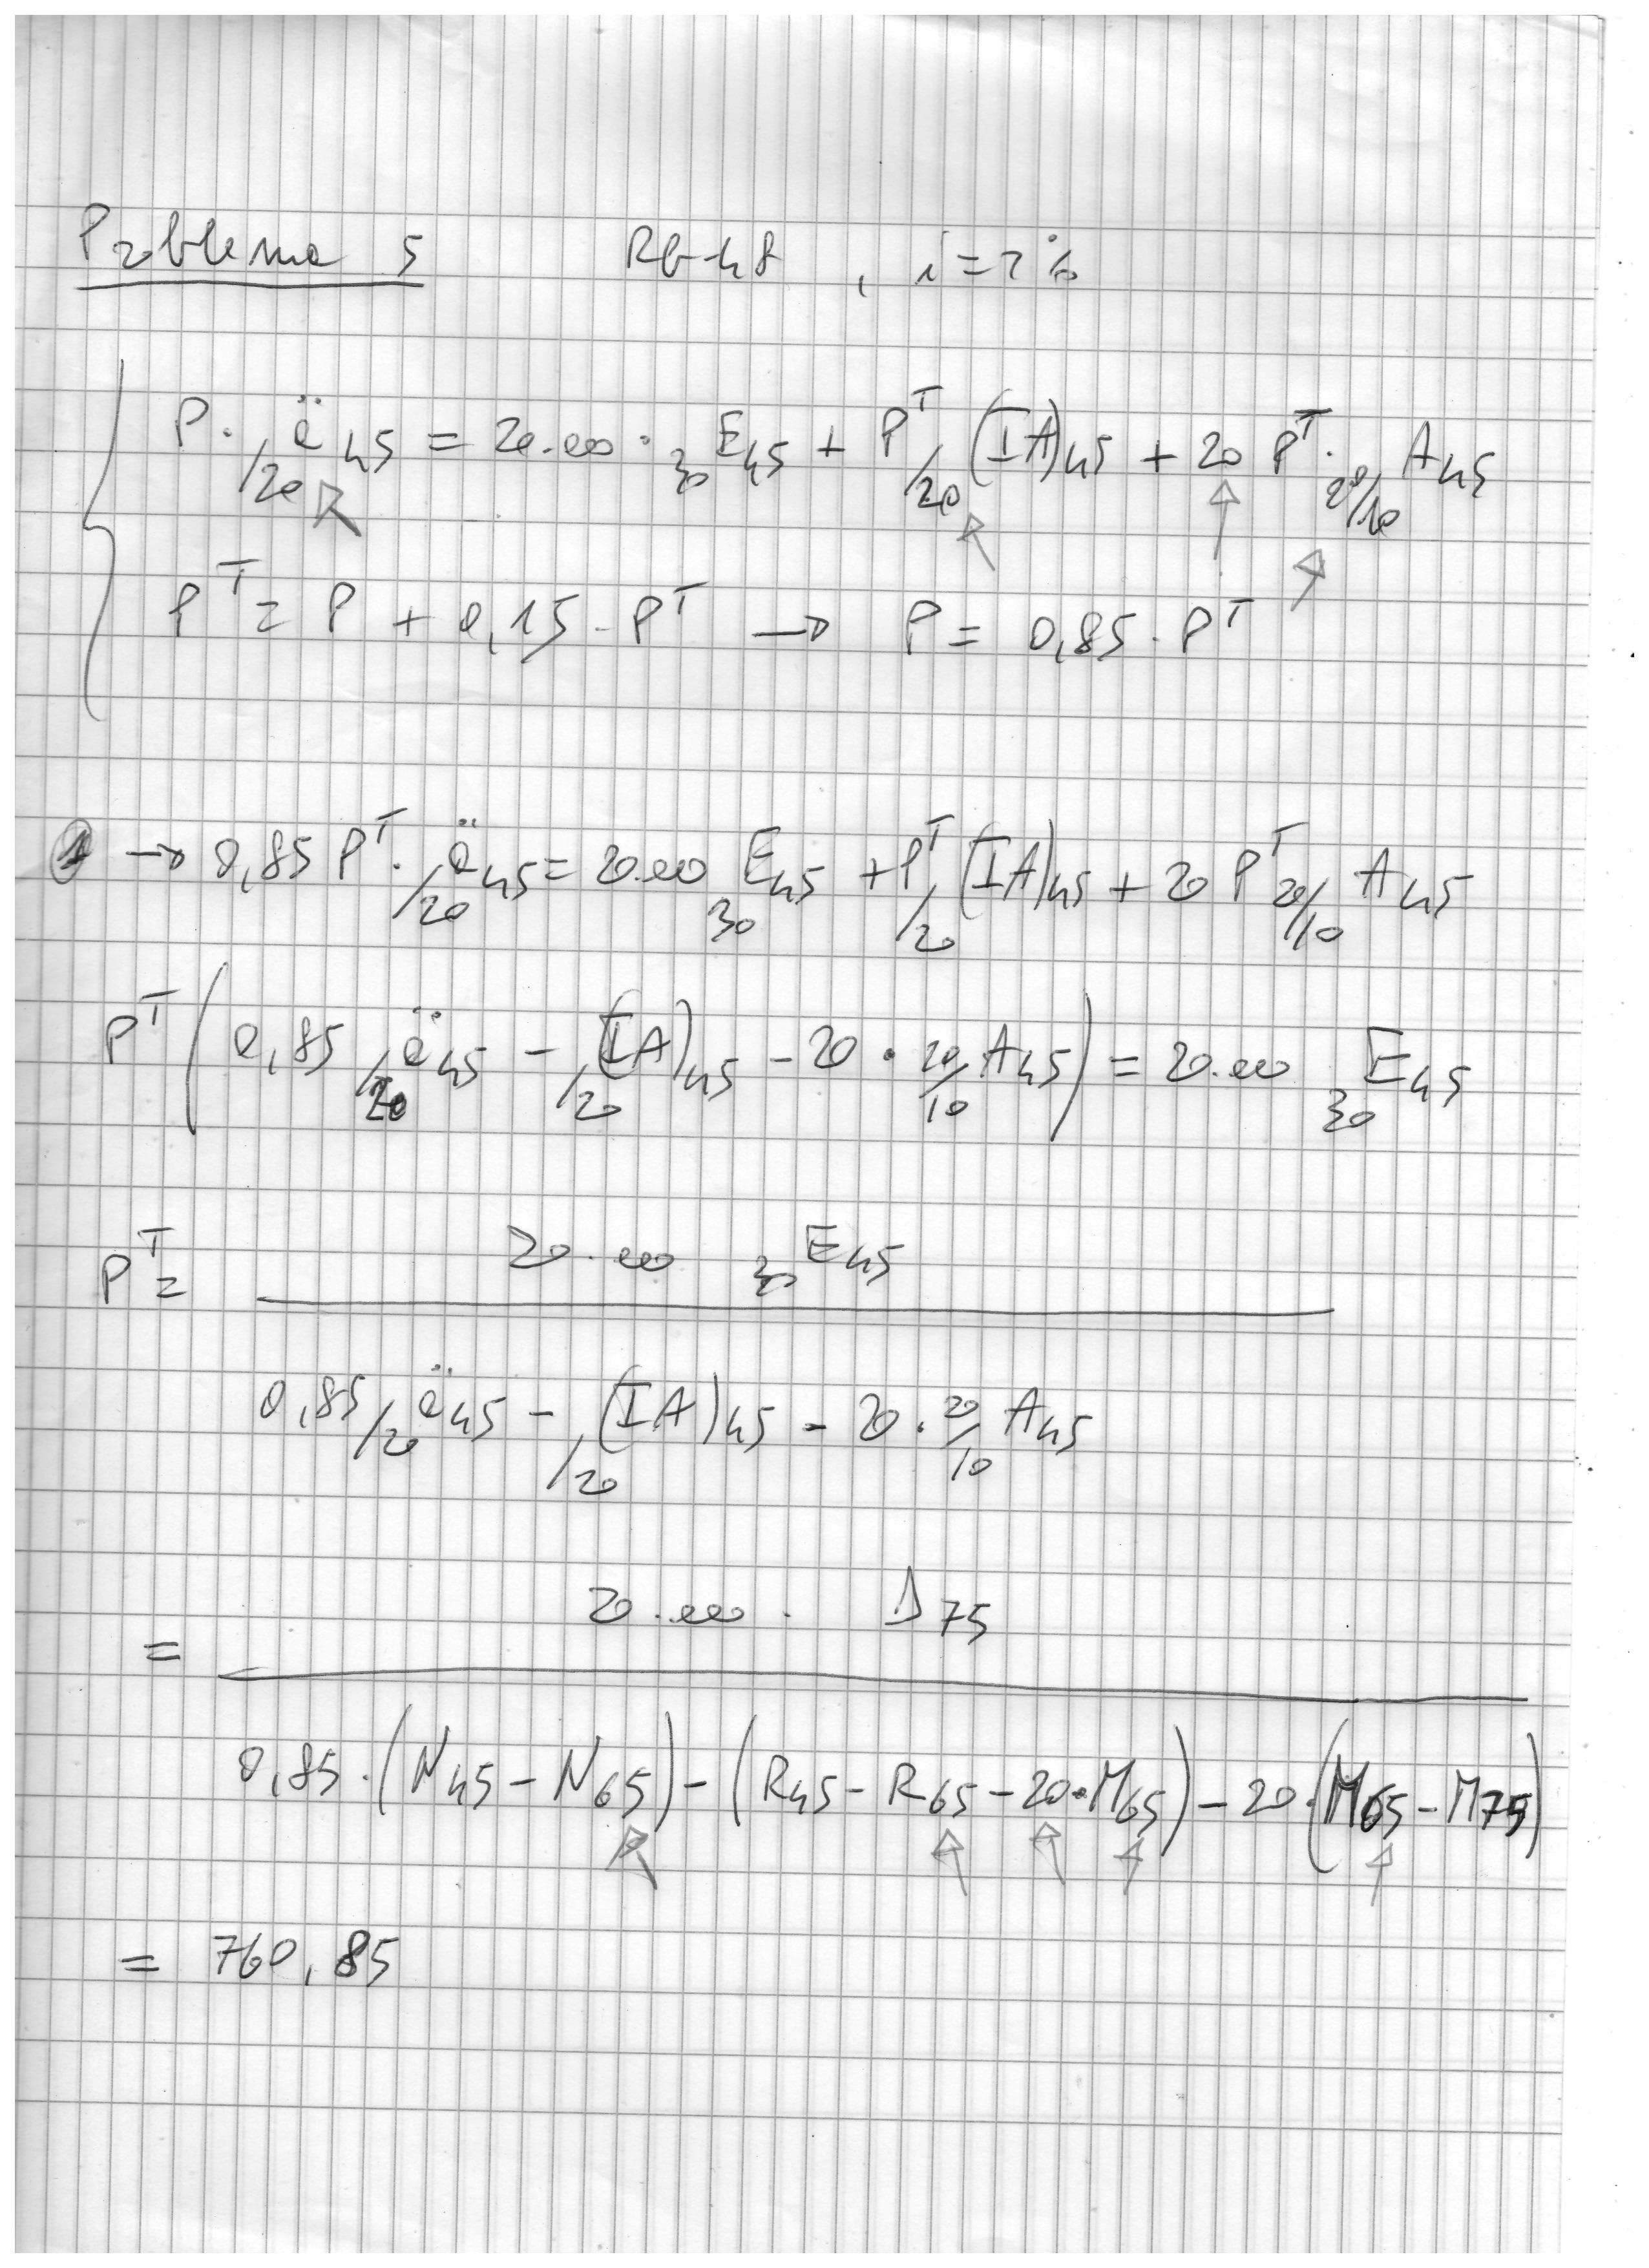 Problema 5 RG-48 , i = 2 %
P · /20 ä 45 = 20.000 · 30 E 45 + P^T /20 (IA) 45 + 20 P^T · 20/10 A 45
P^T = P + 0,15 · P^T → P = 0,85 · P^T
1 → 0,85 P^T · /20 ä 45 = 20.000 30 E 45 + P^T /20 (IA) 45 + 20 P^T 20/10 A 45
P^T ( 0,85 /20 ä 45 − /20 (IA) 45 − 20 · 20/10 A 45 ) = 20.000 30 E 45
P^T = 20.000 30 E 45
0,85 /20 ä 45 − /20 (IA) 45 − 20 · 20/10 A 45
= 20.000 · D 75
0,85 · (N 45 − N 65) − (R 45 − R 65 − 20 · M 65) − 20 · (M 65 − M 75)
= 760,85